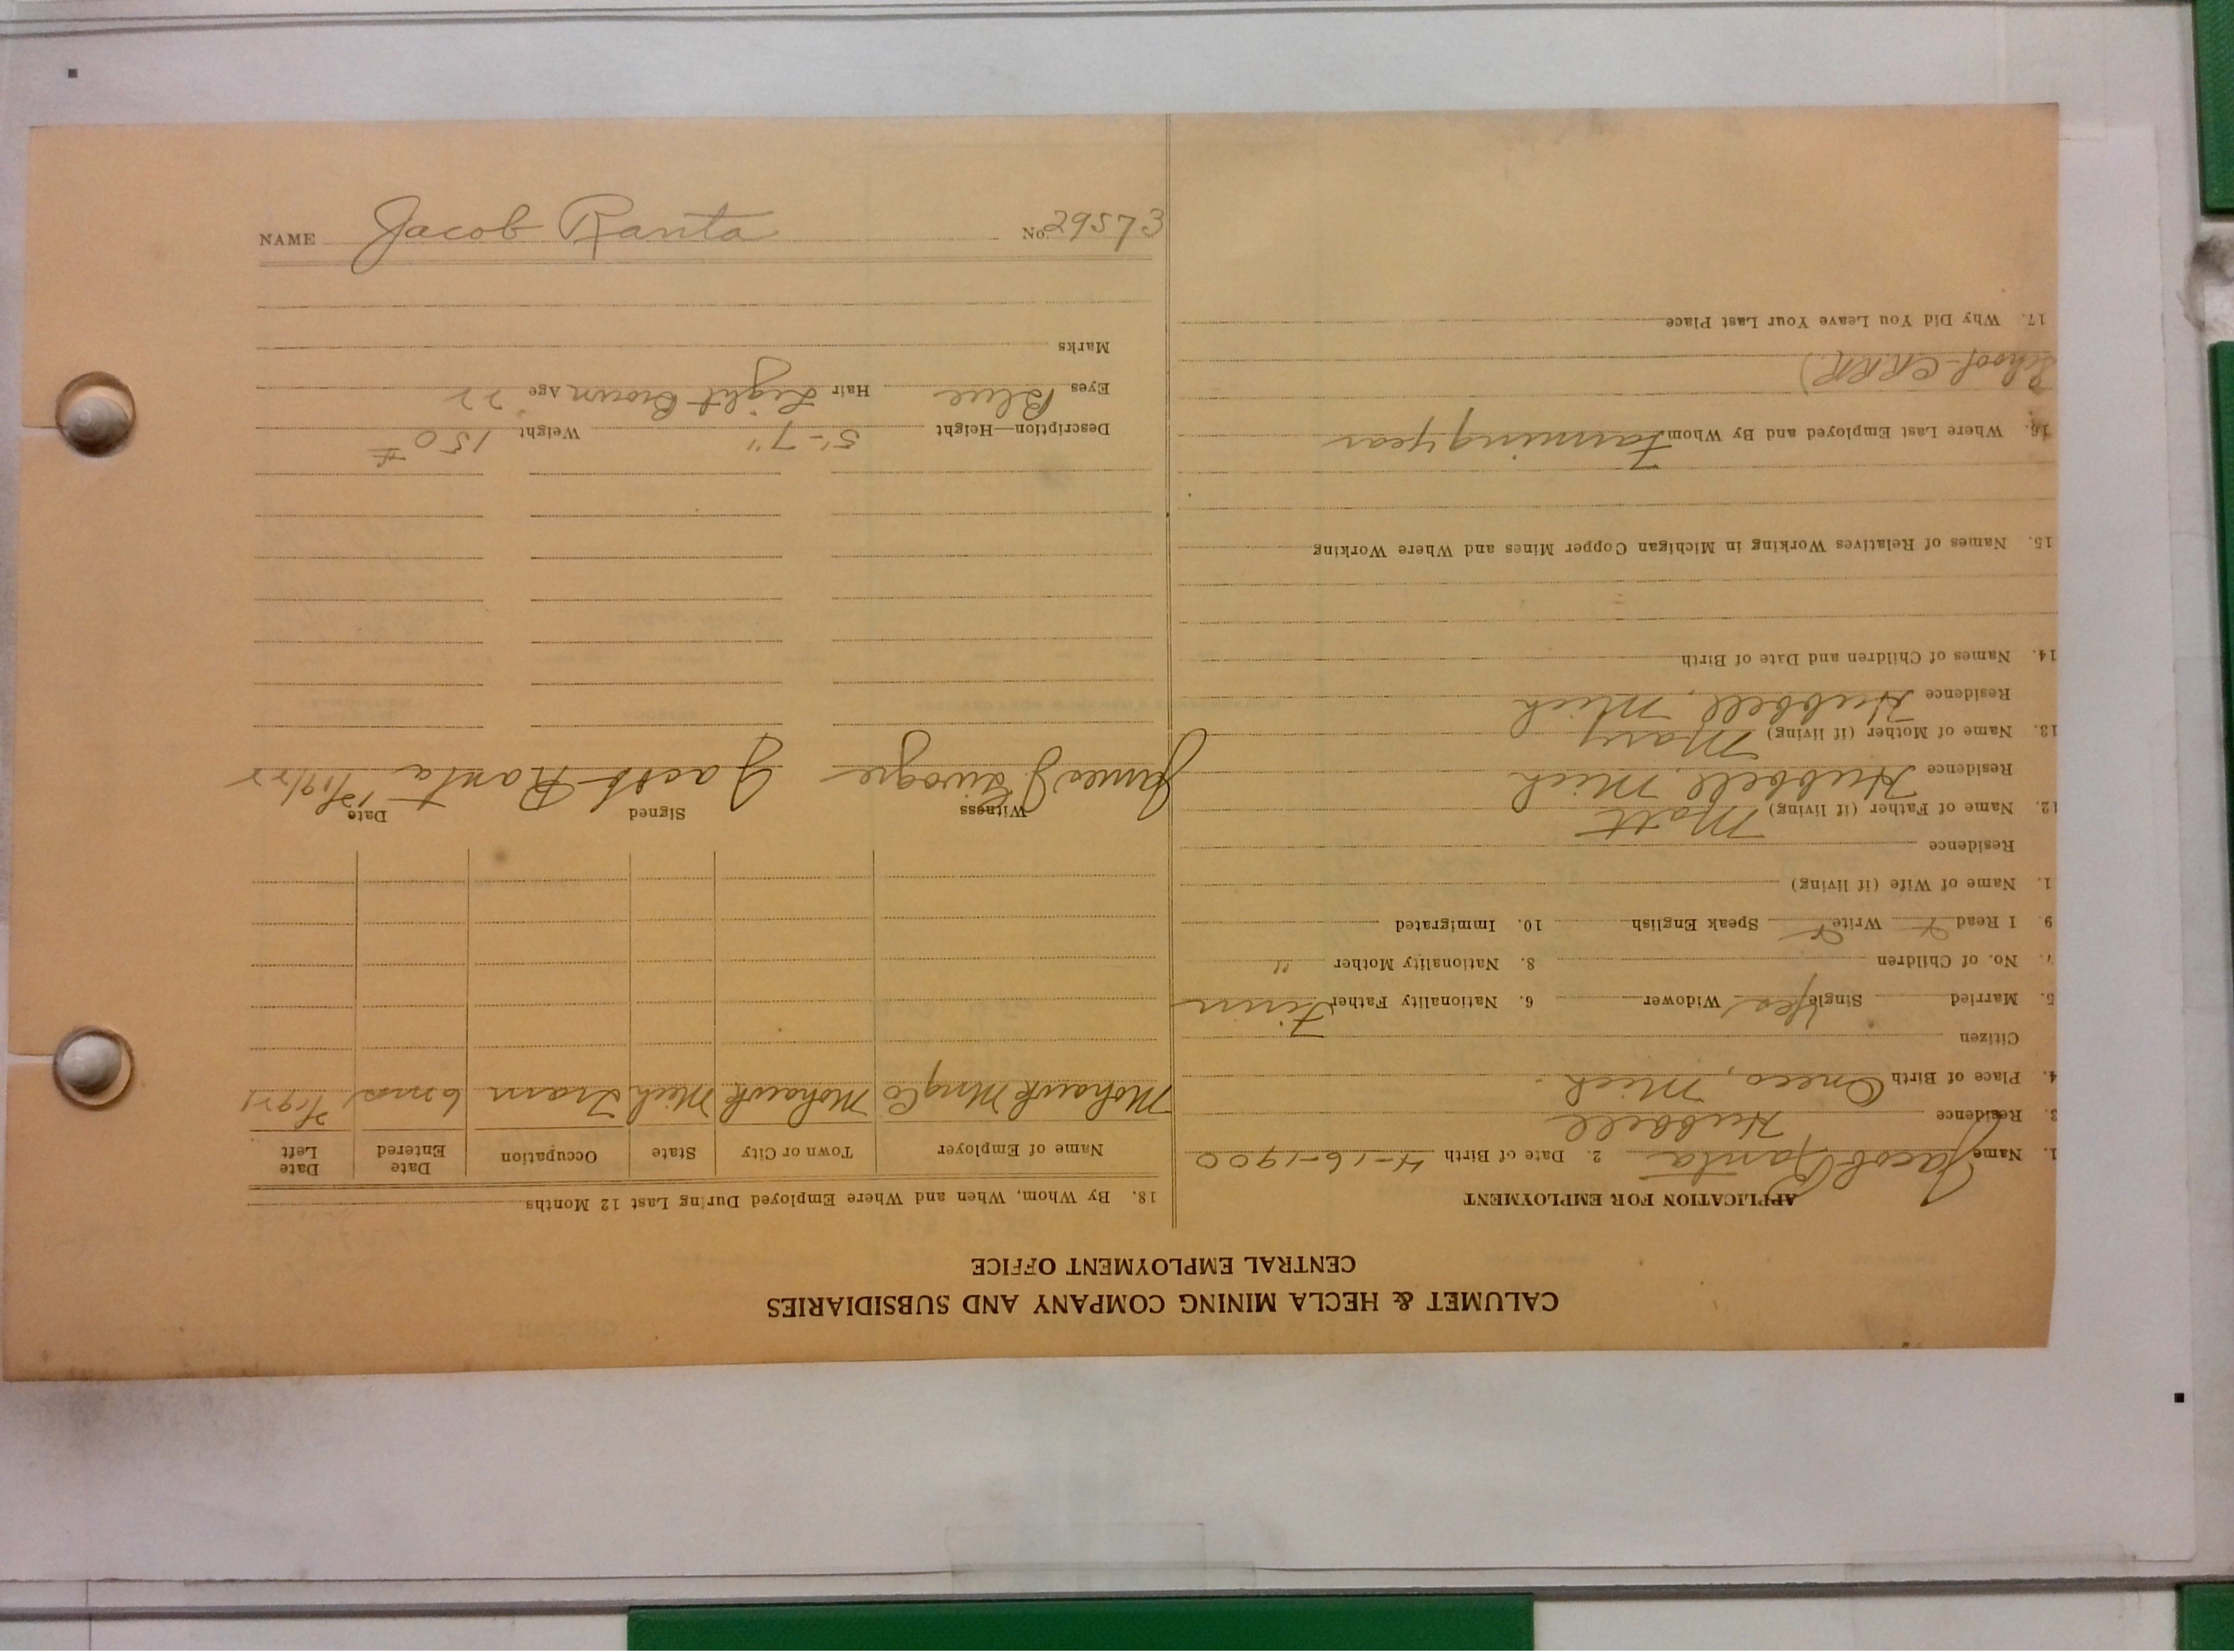 NAME Jacob Ranta No. 29573
CALUMET & HECLA MINING COMPANY AND SUBSIDIARIES
CENTRAL EMPLOYMENT OFFICE
APPLICATION FOR EMPLOYMENT
1. Name Jacob Ranta 2. Date of Birth 4-16-1900
3. Residence Hubbell
4. Place of Birth Oneco, Mich.
Citizen
5. Married Single Yes Widower 6. Nationality Father Finn
7. No. of Children 8. Nationality Mother "
9. I Read Write Speak English 10. Immigrated
1. Name of Wife (if living)
Residence
12. Name of Father (if living) Matt
Residence Hubbell, Mich
13. Name of Mother (if living) Mary
Residence Hubbell, Mich
14. Names of Children and Date of Birth
15. Names of Relatives Working in Michigan Copper Mines and Where Working
16. Where Last Employed and By Whom Farming year
School - C.R.R.R.)
17. Why Did You Leave Your Last Place
18. By Whom, When and Where Employed During Last 12 Months
Name of Employer Town or City State Occupation Date Entered Date Left
Mohawk Mng Co Mohawk Mich Tram 6 mos 1921
Witness Signed Date
James J. Jacob Ranta 12/19/22
Description—Height 5'-7" Weight 150 #
Eyes Blue Hair Light Brown Age 22
Marks